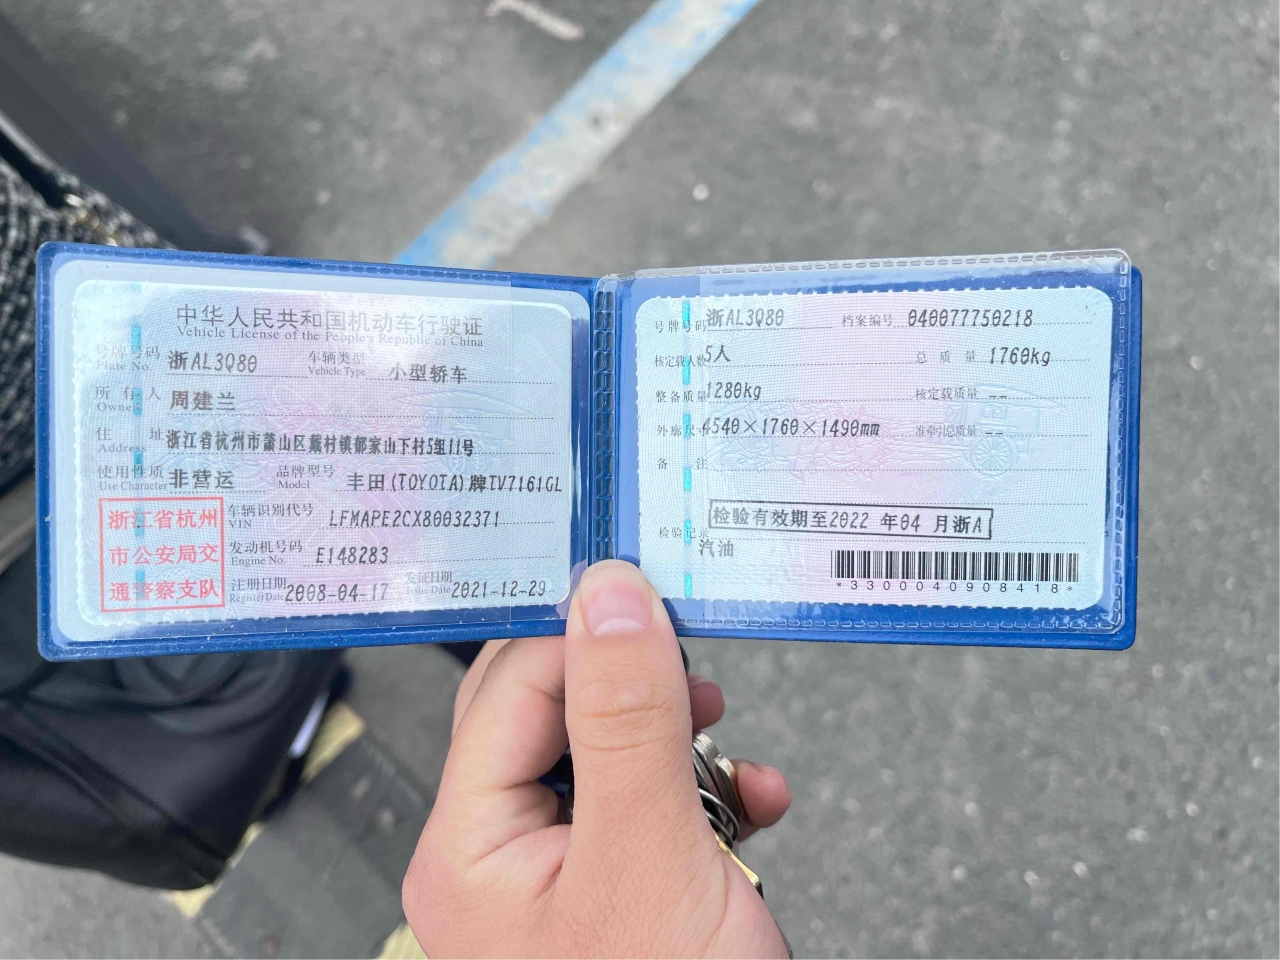 中华人民共和国机动车行驶证
Vehicle License of the People's Republic of China
号牌号码 浙AL3Q80 车辆类型 小型轿车
Plate No. Vehicle Type
所有人 周建兰
Owner
住址 浙江省杭州市萧山区戴村镇郁家山下村5组11号
Address
使用性质 非营运 品牌型号 丰田(TOYOTA)牌TV7161GL
Use Character Model
浙江省杭州
市公安局交
通警察支队
车辆识别代号 LFMAPE2CX80032371
VIN
发动机号码 E148283
Engine No.
注册日期 2008-04-17 发证日期 2021-12-29
Register Date Issue Date
号牌号码 浙AL3Q80 档案编号 040077750218
核定载人数 5人 总质量 1760kg
整备质量 1280kg 核定载质量 --
外廓尺寸 4540×1760×1490mm 准牵引总质量 --
备注
检验有效期至2022 年04 月浙A
检验记录
汽油
*3300040908418*